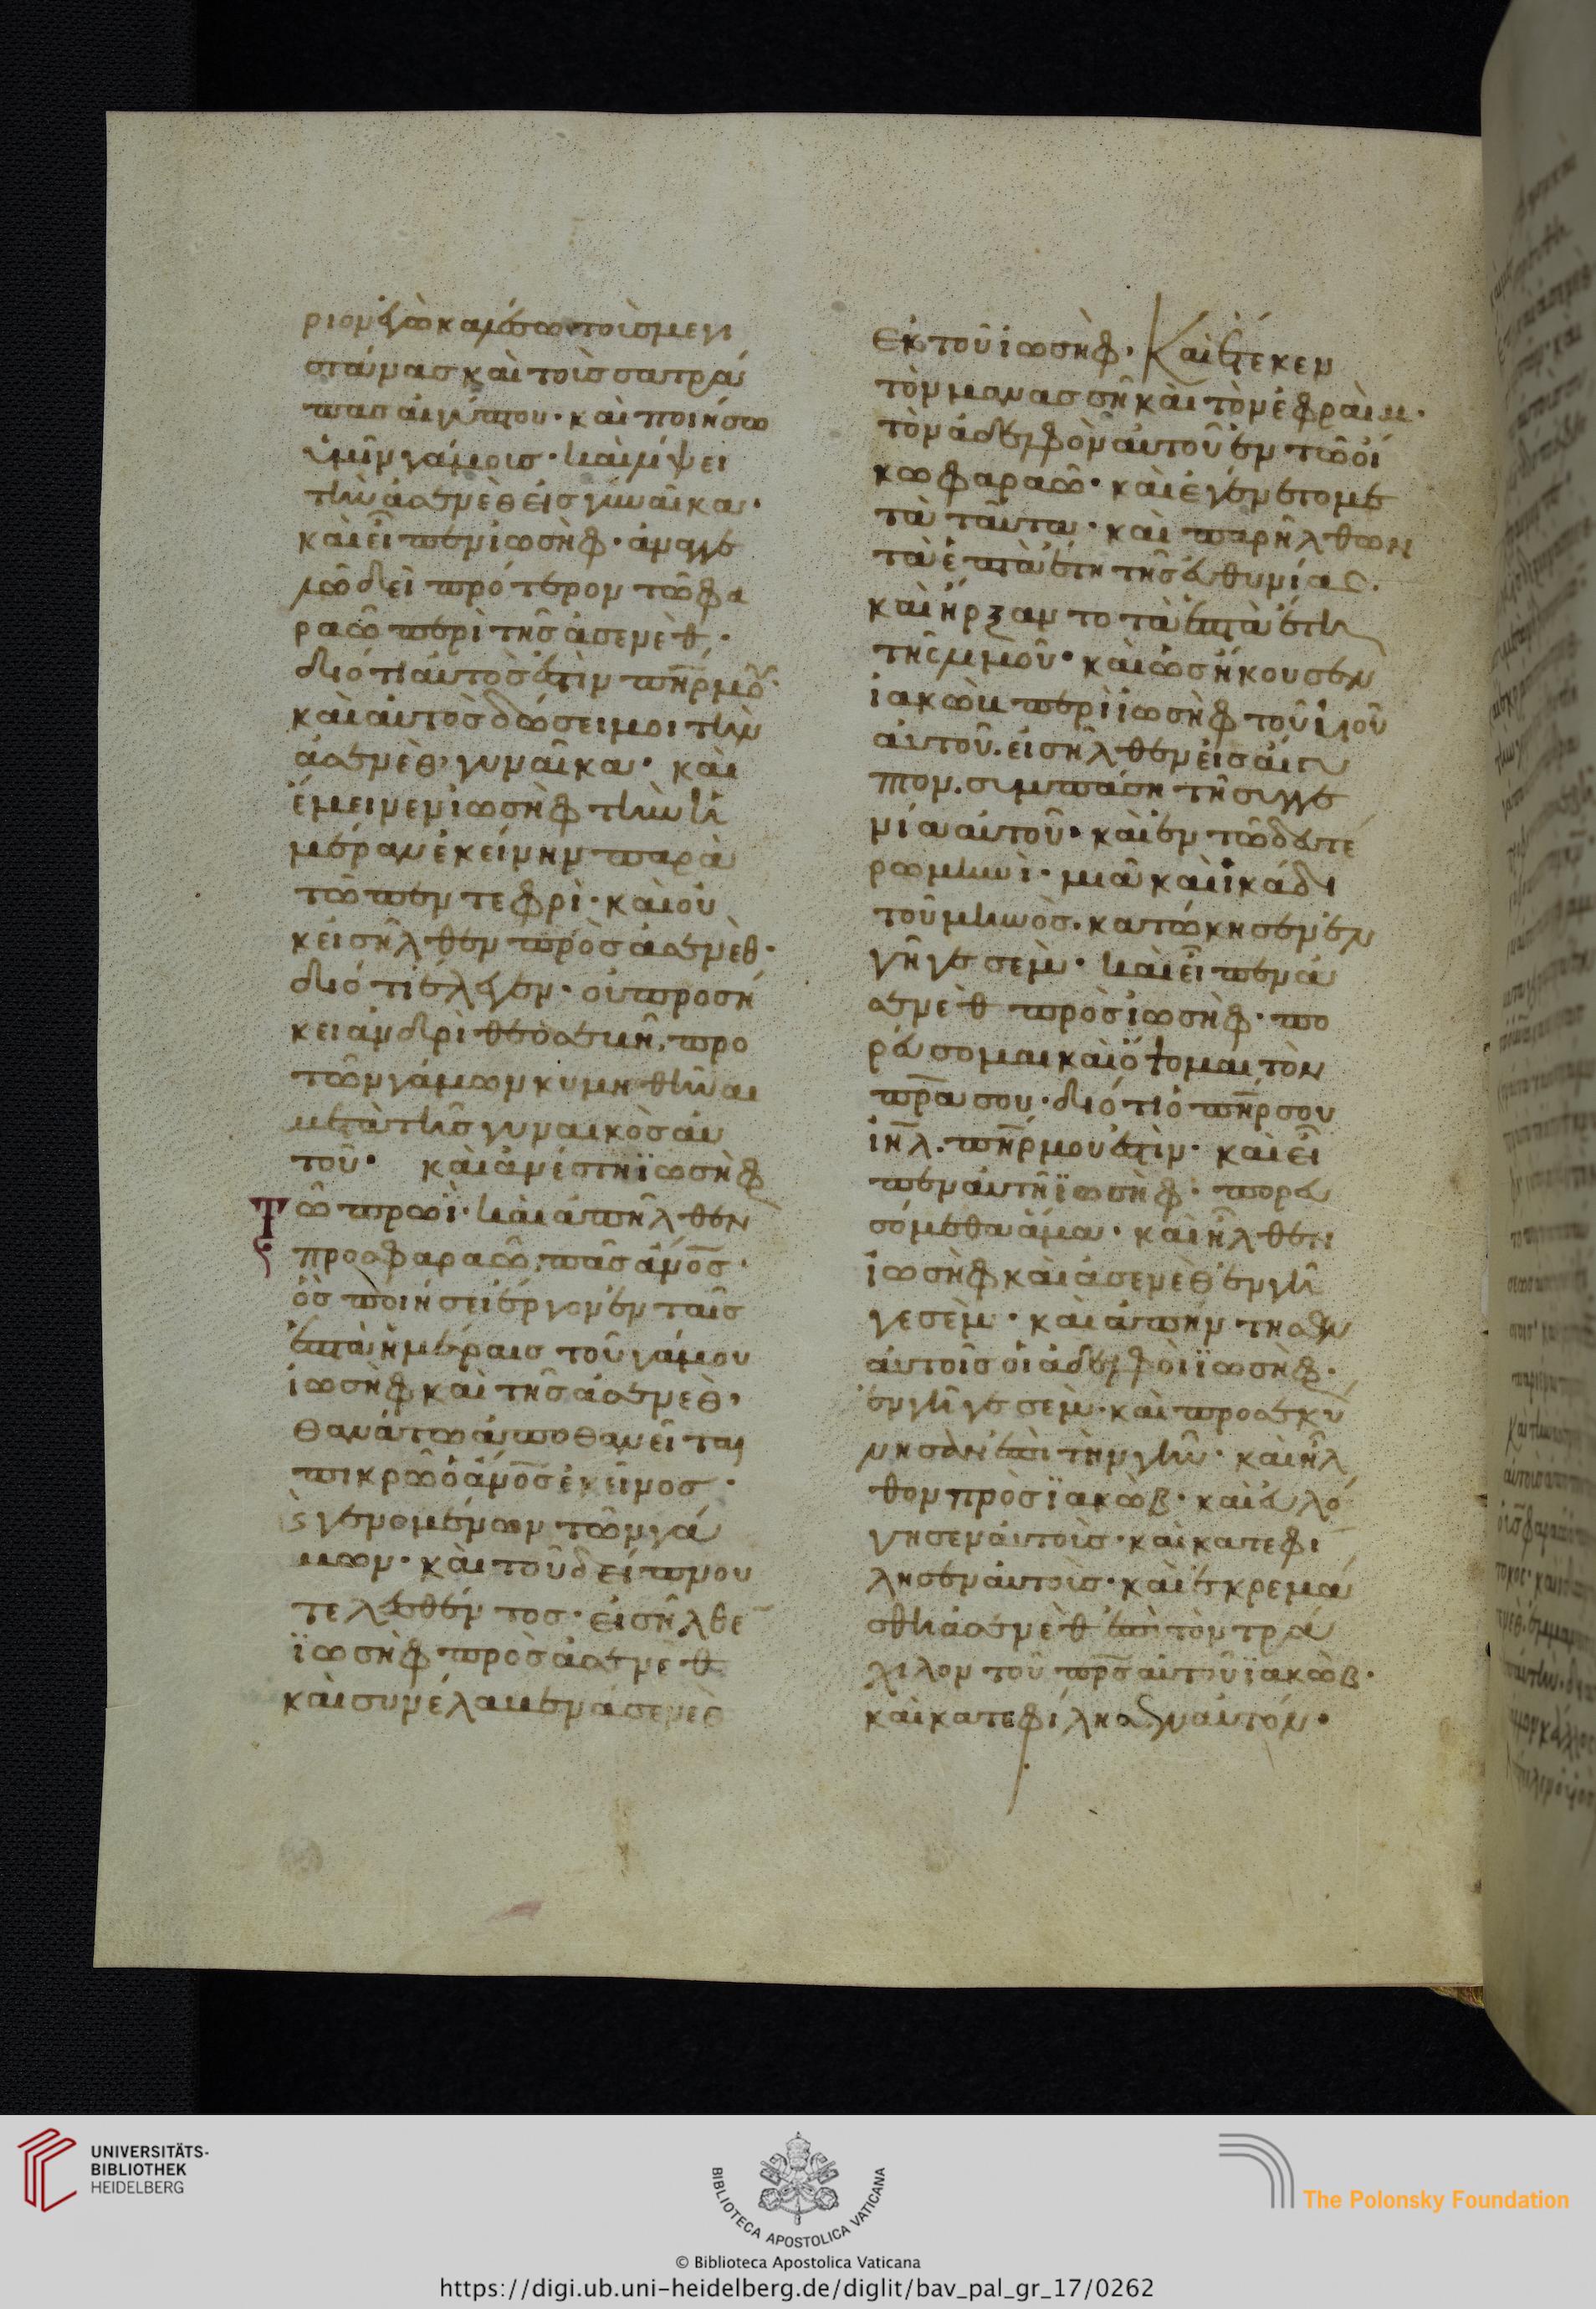 ριον ἐγὼ καλέσω τοὶς μεγι
στάνας καὶ τοὶς σατρά
πας αἰγύπτου· καὶ ποιήσω
ὑμῖν γάμοις· καὶ λήψει
τὴν ἀσενὲθ εἰς γυναῖκα·
καὶ εἶπεν ἰωσὴφ· ἀναγγε
λῶ δεῖ πρότερον τῶ φα
ραῶ περὶ τῆς ἀσενὲθ·
διότι αὐτὸς ἐστὶν πη̅ρ μοῦ·
καὶ αὐτὸς δώσει μοι τὴν
ἀσενὲθ, γυναῖκα· καὶ
ἔμεινεν ἰωσὴφ τὴν ἡ
μέραν ἐκείνην παρὰ
τῶ πεντεφρὶ· καὶ οὐ
κ εἰσῆλθεν πρὸς ἀσενὲθ·
διότι ἔλεγεν· οὐ προσή
κει ἀνδρὶ θεοσεβῆ, προ
τῶν γάμων κυμηθῆναι
μετὰ τῆς γυναικὸς αὐ
τοῦ· καὶ ἀνέστη ἰωσὴφ
Τῶ πρωῒ· καὶ ἀπῆλθεν
προς φαραῶ, πᾶς ἄνο̅ς·
ὃς ποιήσει ἔργον ἐν ταῖς
ἑπτὰ ἡμέραις τοῦ γάμου
ἰωσὴφ καὶ τῆς ἀσενὲθ,
θανάτω ἀποθανεῖται
πικρῶ ὁ ἄνο̅ς ἐκεῖνος·
γενομένων τῶν γά
μων· καὶ τοῦ δείπνου
τελεσθέντος· εἰσῆλθε̅
ἰωσὴφ πρὸς ἀσενὲθ
καὶ συνέλαβεν ἀσενὲθ
ἐκ τοῦ ἰωσὴφ· Καὶ ἔτεκεν
τὸν μανασσῆ καὶ τὸν ἐφραὶμ·
τὸν ἀδελφὸν αὐτοῦ ἐν τῶ οἴ
κω φαραῶ· καὶ ἐγένετο με
τὰ ταῦτα· καὶ παρῆλθων
τὰ ἑπτὰ ἔτη τῆς εὐθυμίας.
καὶ ἤρξαντο τὰ ἑπτὰ ἔτη
τῆς λιμοῦ· καὶ ὡς ἤκουσεν
ἰακὼβ περὶ ἰωσὴφ τοῦ υἱοῦ
αὐτοῦ. εἰσῆλθεν εἰς αἴγυ
πτον. συμπάση τῆ συγγε
νία αὐτοῦ· καὶ ἐν τῶ δευτέ
ρω μηνὶ· μιᾶ καὶ ἰκάδι
τοῦ μηνὸς. κατώκησεν ἐν
γῆ γεσσὲμ· καὶ εἶπεν ἀ
σενὲθ πρὸς ἰωσὴφ· πο
ρεύσομαι καὶ ὄψομαι τὸν
πρ̅α σου· διότι ὁ πη̅ρ σου
ἰη̅λ. πη̅ρ μου ἐστὶν· καὶ εἶ
πεν αὐτῆ ἰωσὴφ· πορευ
σόμεθα ἅμα· καὶ ἦλθεν
ἰωσὴφ καὶ ἀσενὲθ ἐν γῆ
γεσὲμ· καὶ ἀπήντησεν
αὐτοῖς οἱ ἀδελφοὶ ἰωσὴφ·
ἐν γῆ γεσσὲμ· καὶ προσεκύ
νησαν ἐπὶ τὴν γῆν· καὶ ἦλ
θον πρὸς ἰακὼβ· καὶ εὐλό
γησεν αὐτοὶς· καὶ κατεφί
λησεν αὐτοὶς· καὶ ἐκρεμά
σθη ἀσενὲθ ἐπὶ τὸν τρά
χιλον τοῦ πρ̅ς αὐτοῦ ἰακὼβ·
καὶ κατεφίλησεν αὐτόν·
UNIVERSITÄTS-
BIBLIOTHEK
HEIDELBERG
BIBLIOTECA APOSTOLICA VATICANA
The Polonsky Foundation
© Biblioteca Apostolica Vaticana
https://digi.ub.uni-heidelberg.de/diglit/bav_pal_gr_17/0262